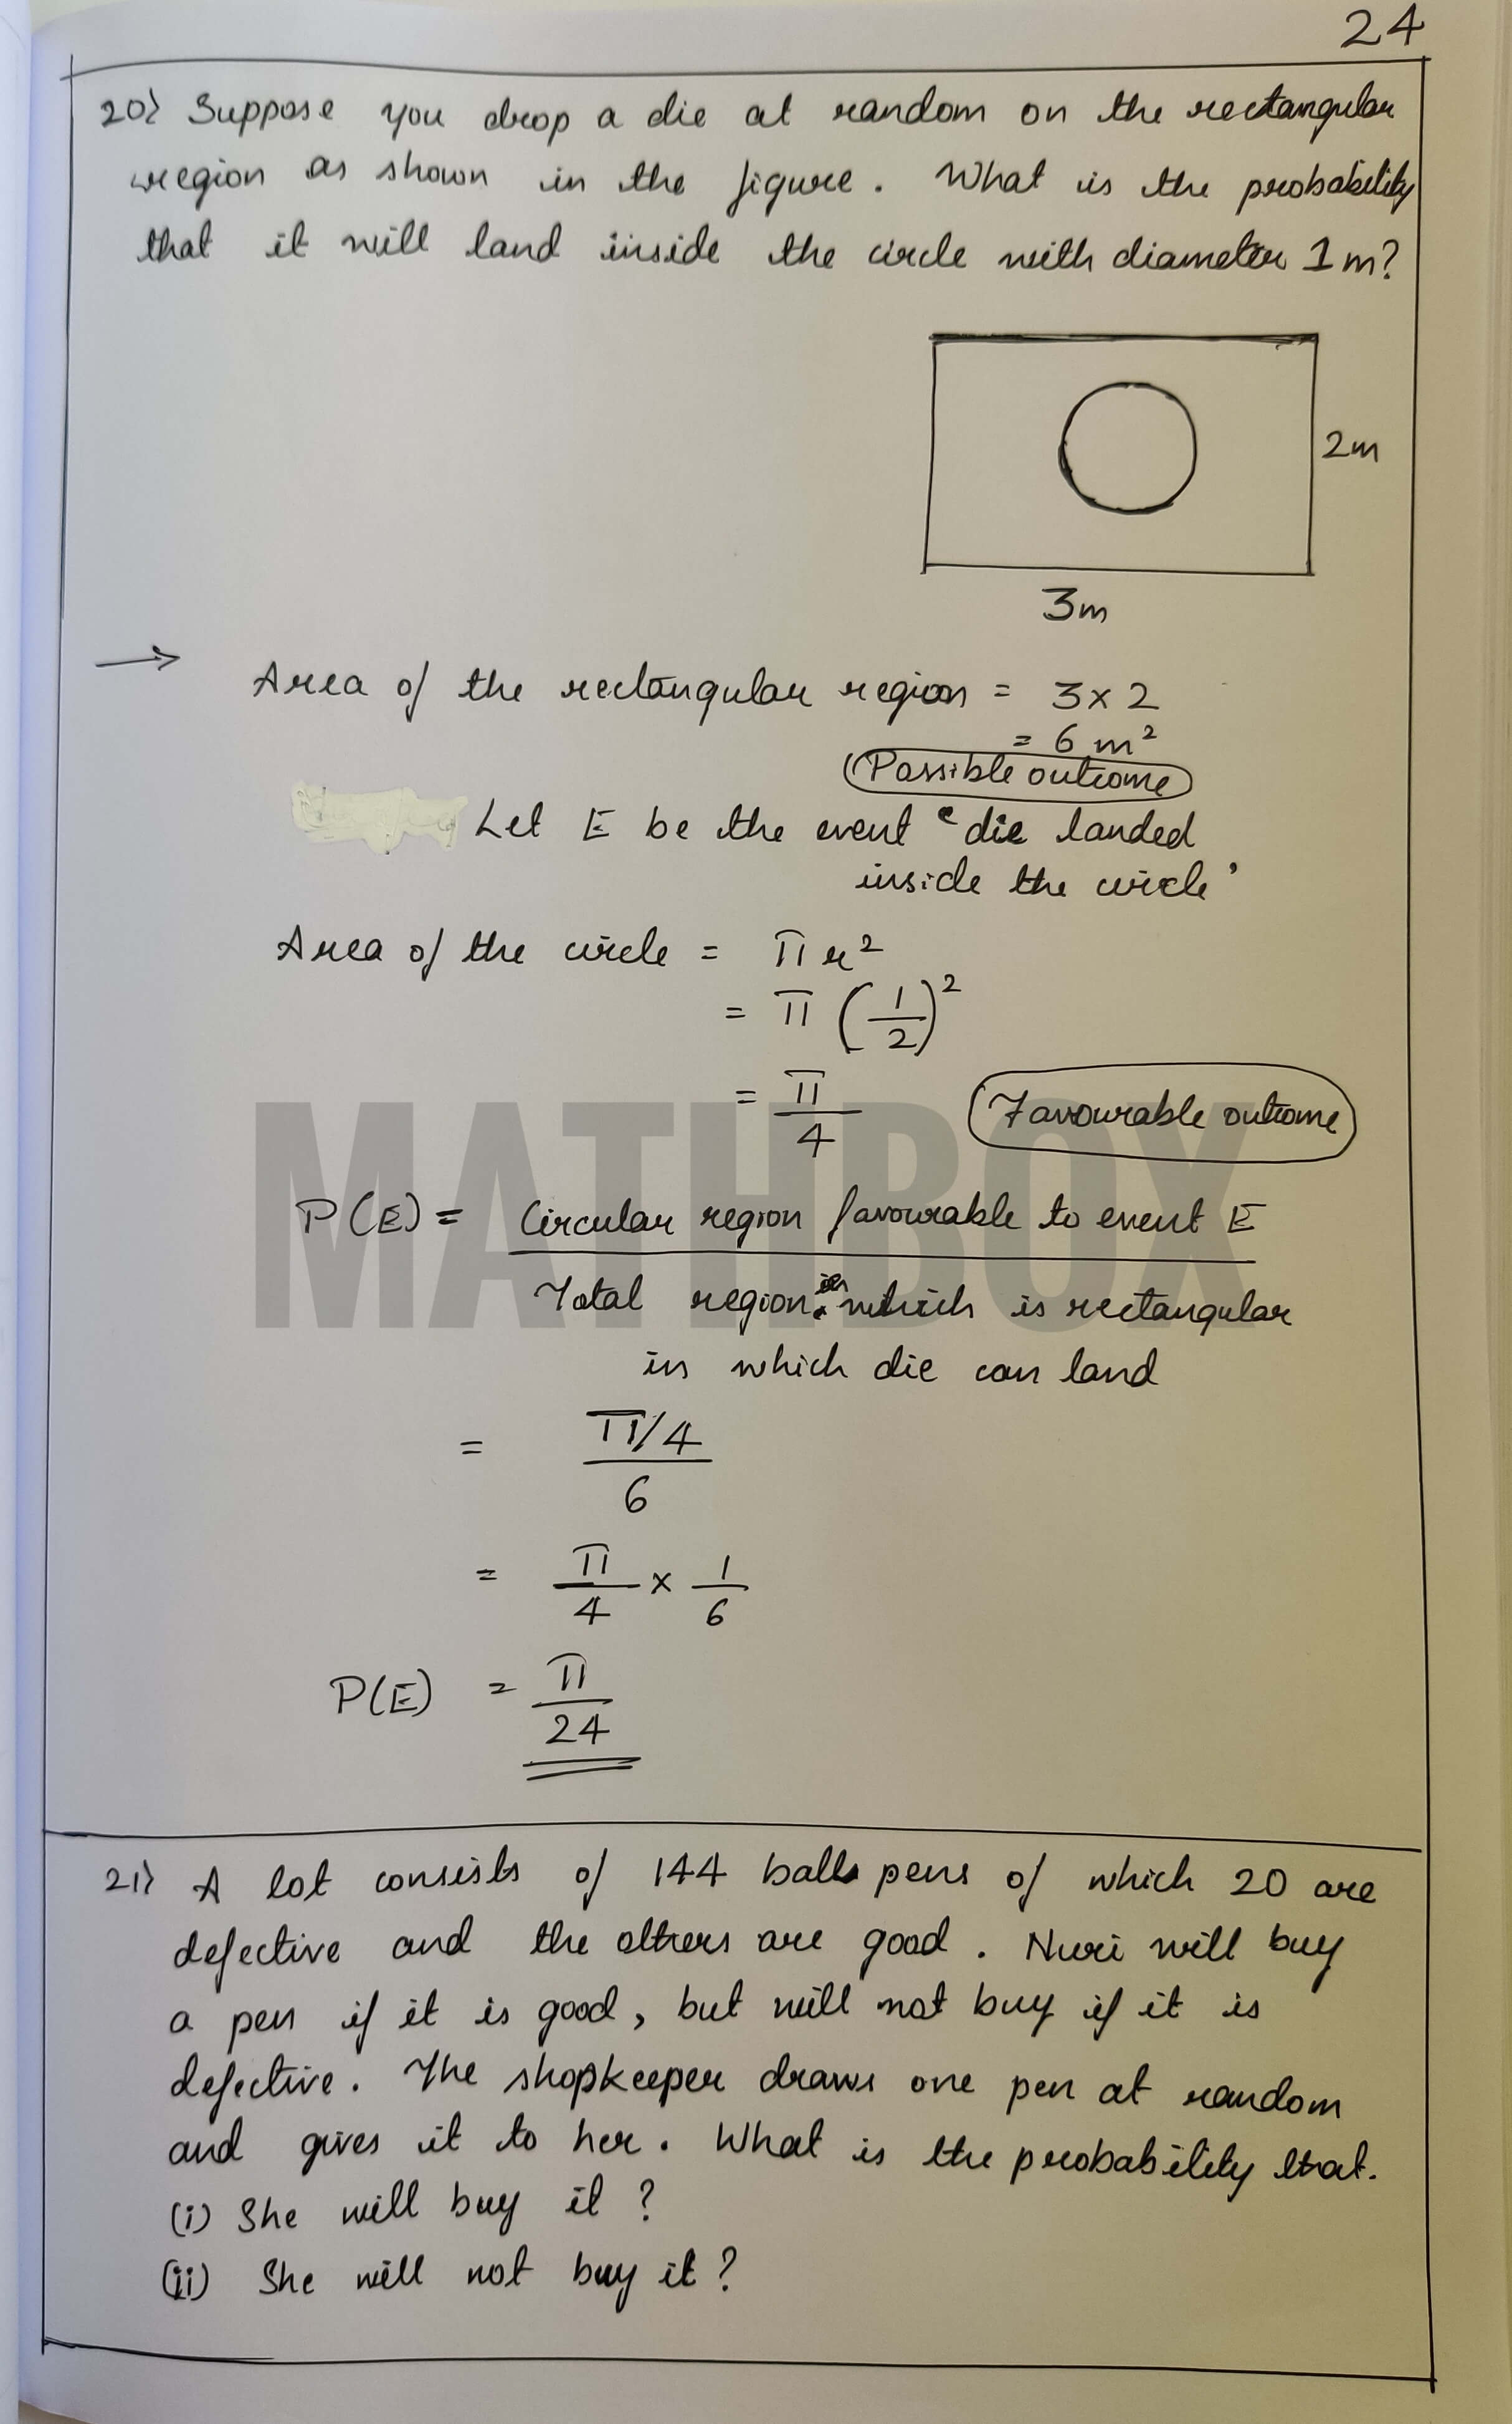 24
20) Suppose you drop a die at random on the rectangular
region as shown in the figure. What is the probability
that it will land inside the circle with diameter 1m?
2m
3m
→ Area of the rectangular region = 3x2
= 6 m²
Possible outcome
Let E be the event ‘die landed
inside the circle’
Area of the circle = πr²
= π (1/2)²
= π/4
Favourable outcome
MATHBOX
P(E) = Circular region favourable to event E
Total region which is rectangular
in which die can land
= π/4
6
= π/4 × 1/6
P(E) = π/24
21) A lot consists of 144 ball pens of which 20 are
defective and the others are good. Nuri will buy
a pen if it is good, but will not buy if it is
defective. The shopkeeper draws one pen at random
and gives it to her. What is the probability that.
(i) She will buy it?
(ii) She will not buy it?